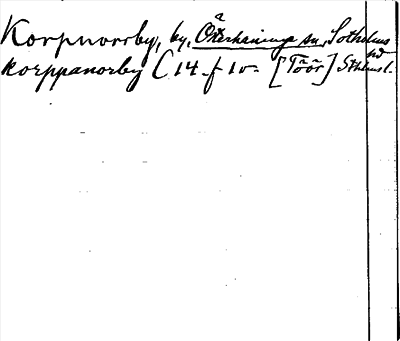 Korpnorrby, by, Österhaninge sn, Sotholms hd
korppanorby C 14 f 10 [Töör] Sthlms l.